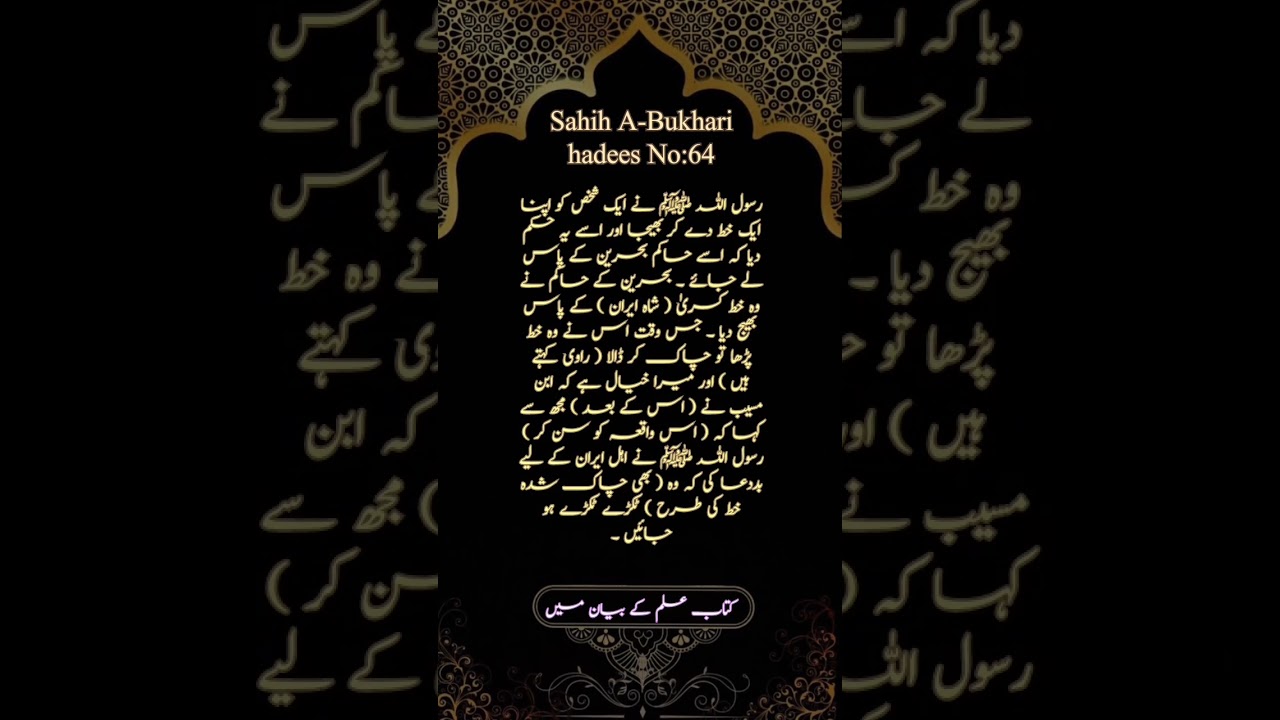 Sahih A-Bukhari
hadees No:64
رسول اللہ ﷺ نے ایک شخص کو اپنا
ایک خط دے کر بھیجا اور اسے یہ حکم
دیا کہ اسے حاکم بحرین کے پاس
لے جائے ۔ بحرین کے حاکم نے
وہ خط کسریٰ ( شاہ ایران ) کے پاس
بھیج دیا ۔ جس وقت اس نے وہ خط
پڑھا تو چاک کر ڈالا ( راوی کہتے
ہیں ) اور میرا خیال ہے کہ ابن
مسیب نے ( اس کے بعد ) مجھ سے
کہا کہ ( اس واقعہ کو سن کر )
رسول اللہ ﷺ نے اہل ایران کے لیے
بددعا کی کہ وہ ( بھی چاک شدہ
خط کی طرح ) ٹکڑے ٹکڑے ہو
جائیں ۔
کتاب علم کے بیان میں